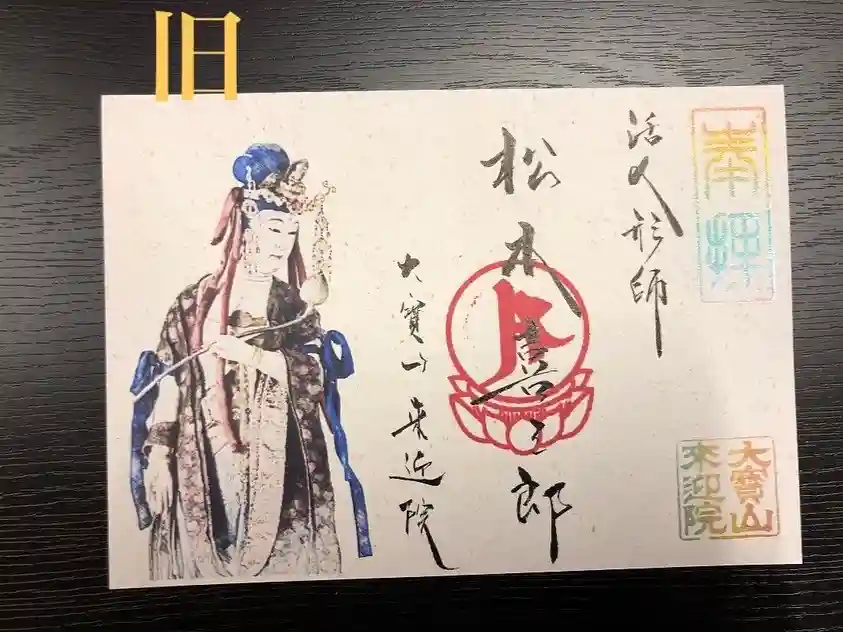 旧
奉拝
活人形師
松本喜三郎
大寶山来迎院
大寶山
来迎院